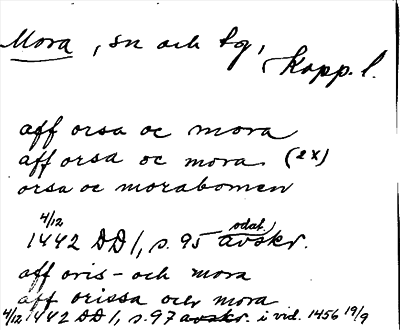 Mora, sn och tg, Kopp. l.
aff orsa oc mora
aff orsa oc mora (2x)
orsa oc morabomen
4/12 1442 DD 1, s. 95 odat. avskr.
aff oris- och mora
aff orissa och mora
4/12 1442 DD 1, s. 97 avskr. i vid. 1456 19/9